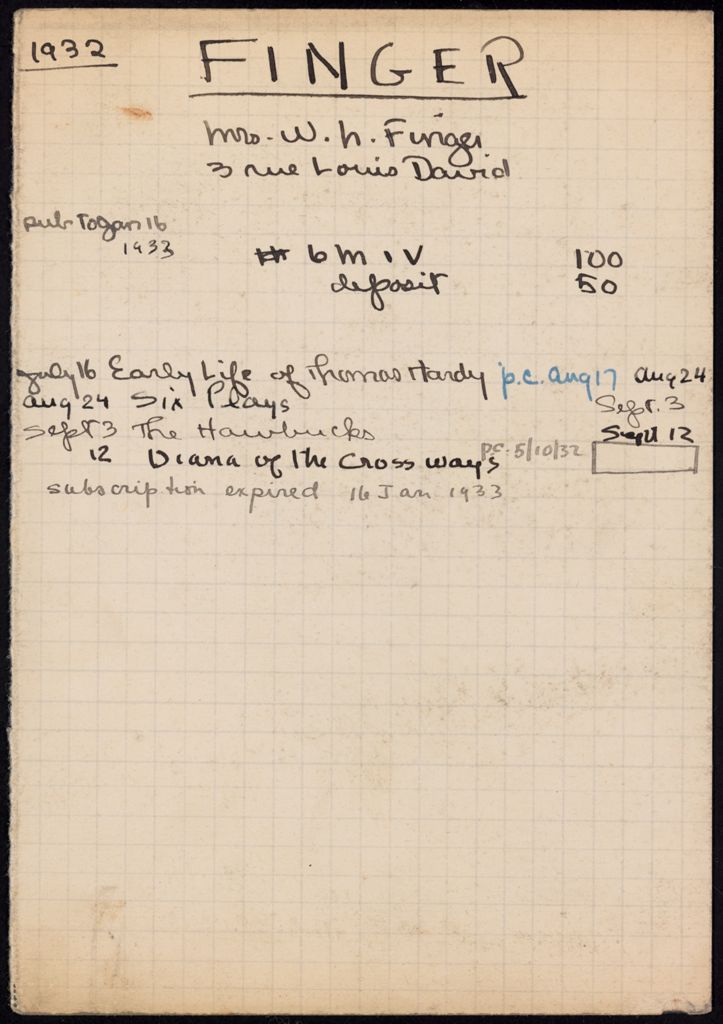 1932
FINGER
Mrs. W. h. Finger
3 rue Louis David
sub to Jan 16
1933
6 m 1 V 100
deposit 50
July 16 Early Life of Thomas Hardy p.c. Aug 17 Aug 24
Aug 24 Six Plays Sept. 3
Sept 3 The Hawbucks Sept 12
12 Diana of the Crossways p.c. 5/10/32
subscription expired 16 Jan 1933